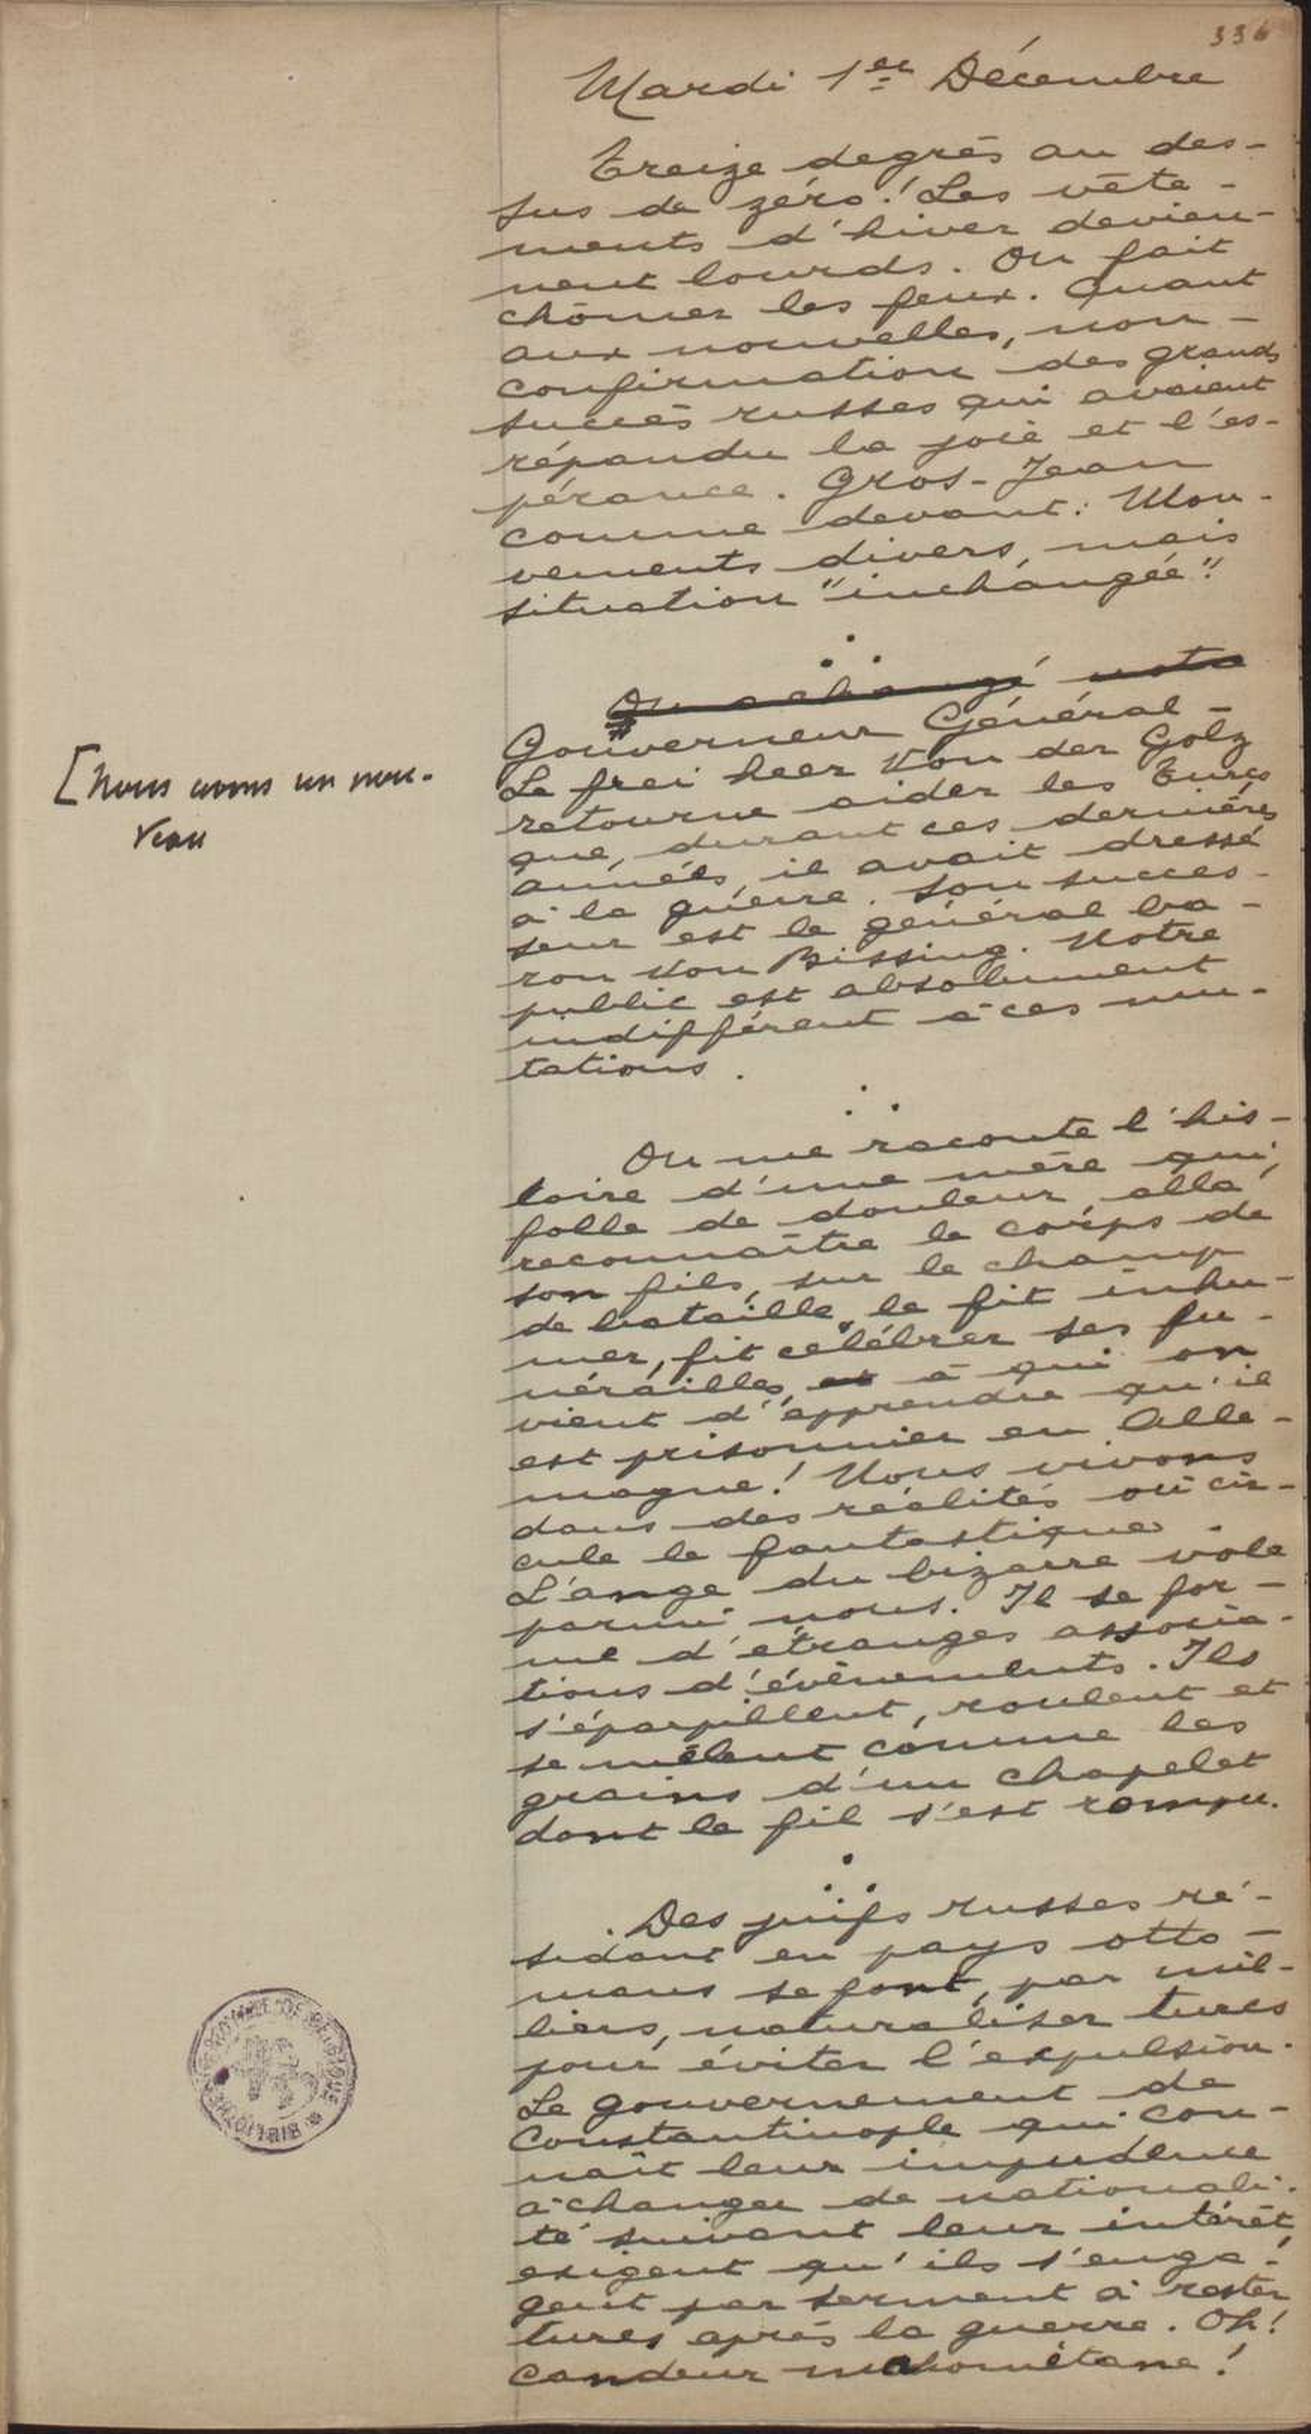 336
Mardi 1er Décembre
Treize degrés au des-
sus de zéro! Les vête-
ments d'hiver devien-
nent lourds. On fait
chômer les feux. Quant
aux nouvelles, non-
confirmation des grands
succès russes qui avaient
répandu la joie et l'es-
pérance. Gros-Jean
comme devant: Mou-
vements divers, mais
situation "inchangée".
On a changé notre
[Nous avons un nou-
veau
Gouverneur Général-
Le frei heer Von der Golz
retourne aider les Turcs
que, durant ces dernières
années, il avait dressé
à la guerre. Son succes-
seur est le général ba-
ron Von Bissing. Notre
public est absolument
indifférent à ces mu-
tations.
On me raconte l'his-
toire d'une mère qui,
folle de douleur, alla
reconnaître le corps de
son fils, sur le champ
de bataille, le fit inhu-
mer, fit célébrer ses fu-
nérailles, et à qui on
vient d'apprendre qu'il
est prisonnier en Alle-
magne! Nous vivons
dans des réalités où cir-
cule le fantastique.
L'ange du bizarre vole
parmi nous. Il se for-
me d'étranges associa-
tions d'évènements. Ils
s'éparpillent, roulent et
se mêlent comme les
grains d'un chapelet
dont le fil s'est rompu.
Des juifs russes ré-
sidant en pays otto-
mans se font, par mil-
liers, naturaliser turcs
pour éviter l'expulsion.
Le gouvernement de
Constantinople qui con-
naît leur impudence
à changer de nationali-
té suivant leur intérêt,
exigent qu'ils s'enga-
gent par serment à rester
turcs après la guerre. Oh!
candeur mahométane!
BIBLIOTHEQUE ROYALE DE BELGIQUE